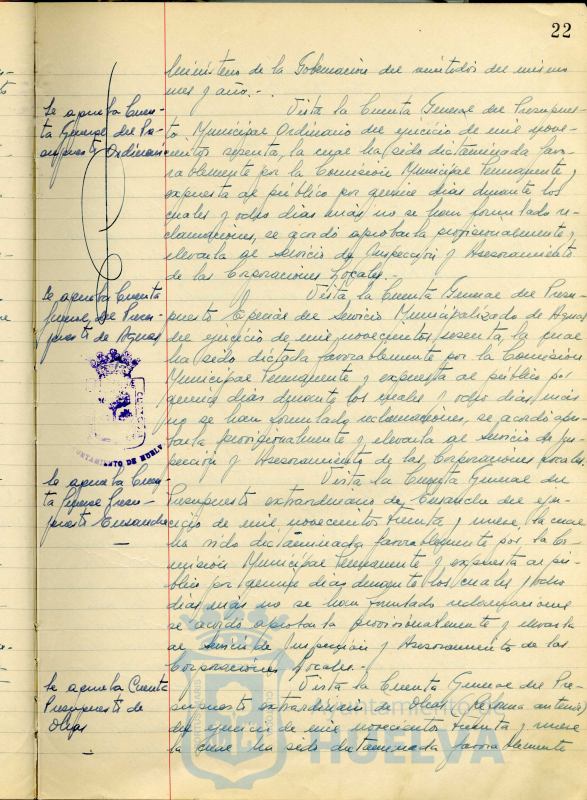 22
Ministerio de la Gobernación del veintidós del mismo
mes y año.-
Se aprueba Cuen-
ta General del Pre-
supuesto Ordinario
Vista la Cuenta General del Presupues-
to Municipal Ordinario del ejercicio de mil nove-
cientos sesenta, la cual ha sido dictaminada favo-
rablemente por la Comisión Municipal Permanente y
expuesta al público por quince días durante los
cuales y ocho días más no se han formulado re-
clamaciones, se acordó aprobarla provisionalmente y
elevarla al Servicio de Inspección y Asesoramiento
de las Corporaciones Locales.-
Se aprueba Cuenta
General del Presu-
puesto de Aguas
Vista la Cuenta General del Presu-
puesto Especial del Servicio Municipalizado de Aguas
del ejercicio de mil novecientos sesenta, la cual
ha sido dictada favorablemente por la Comisión
Municipal Permanente y expuesta al público por
quince días durante los cuales y ocho días más
no se han formulado reclamaciones, se acordó apro-
barla provisionalmente y elevarla al Servicio de Ins-
pección y Asesoramiento de las Corporaciones Locales.
AYUNTAMIENTO DE HUELVA
Se aprueba Cuen-
ta General Presu-
puesto Ensanche
Vista la Cuenta General del
Presupuesto extraordinario de Ensanche del ejer-
cicio de mil novecientos treinta y nueve, la cual
ha sido dictaminada favorablemente por la Co-
misión Municipal Permanente y expuesta al pú-
blico por quince días durante los cuales y ocho
días más no se han formulado reclamaciones
se acordó aprobarla provisionalmente y elevarla
al Servicio de Inspección y Asesoramiento de las
Corporaciones Locales.-
Se aprueba Cuenta
Presupuesto de
Obras
Vista la Cuenta General del Pre-
supuesto extraordinario de Obras (Reforma anterior)
del ejercicio de mil novecientos treinta y nueve
la cual ha sido dictaminada favorablemente
Ayuntamiento
HUELVA